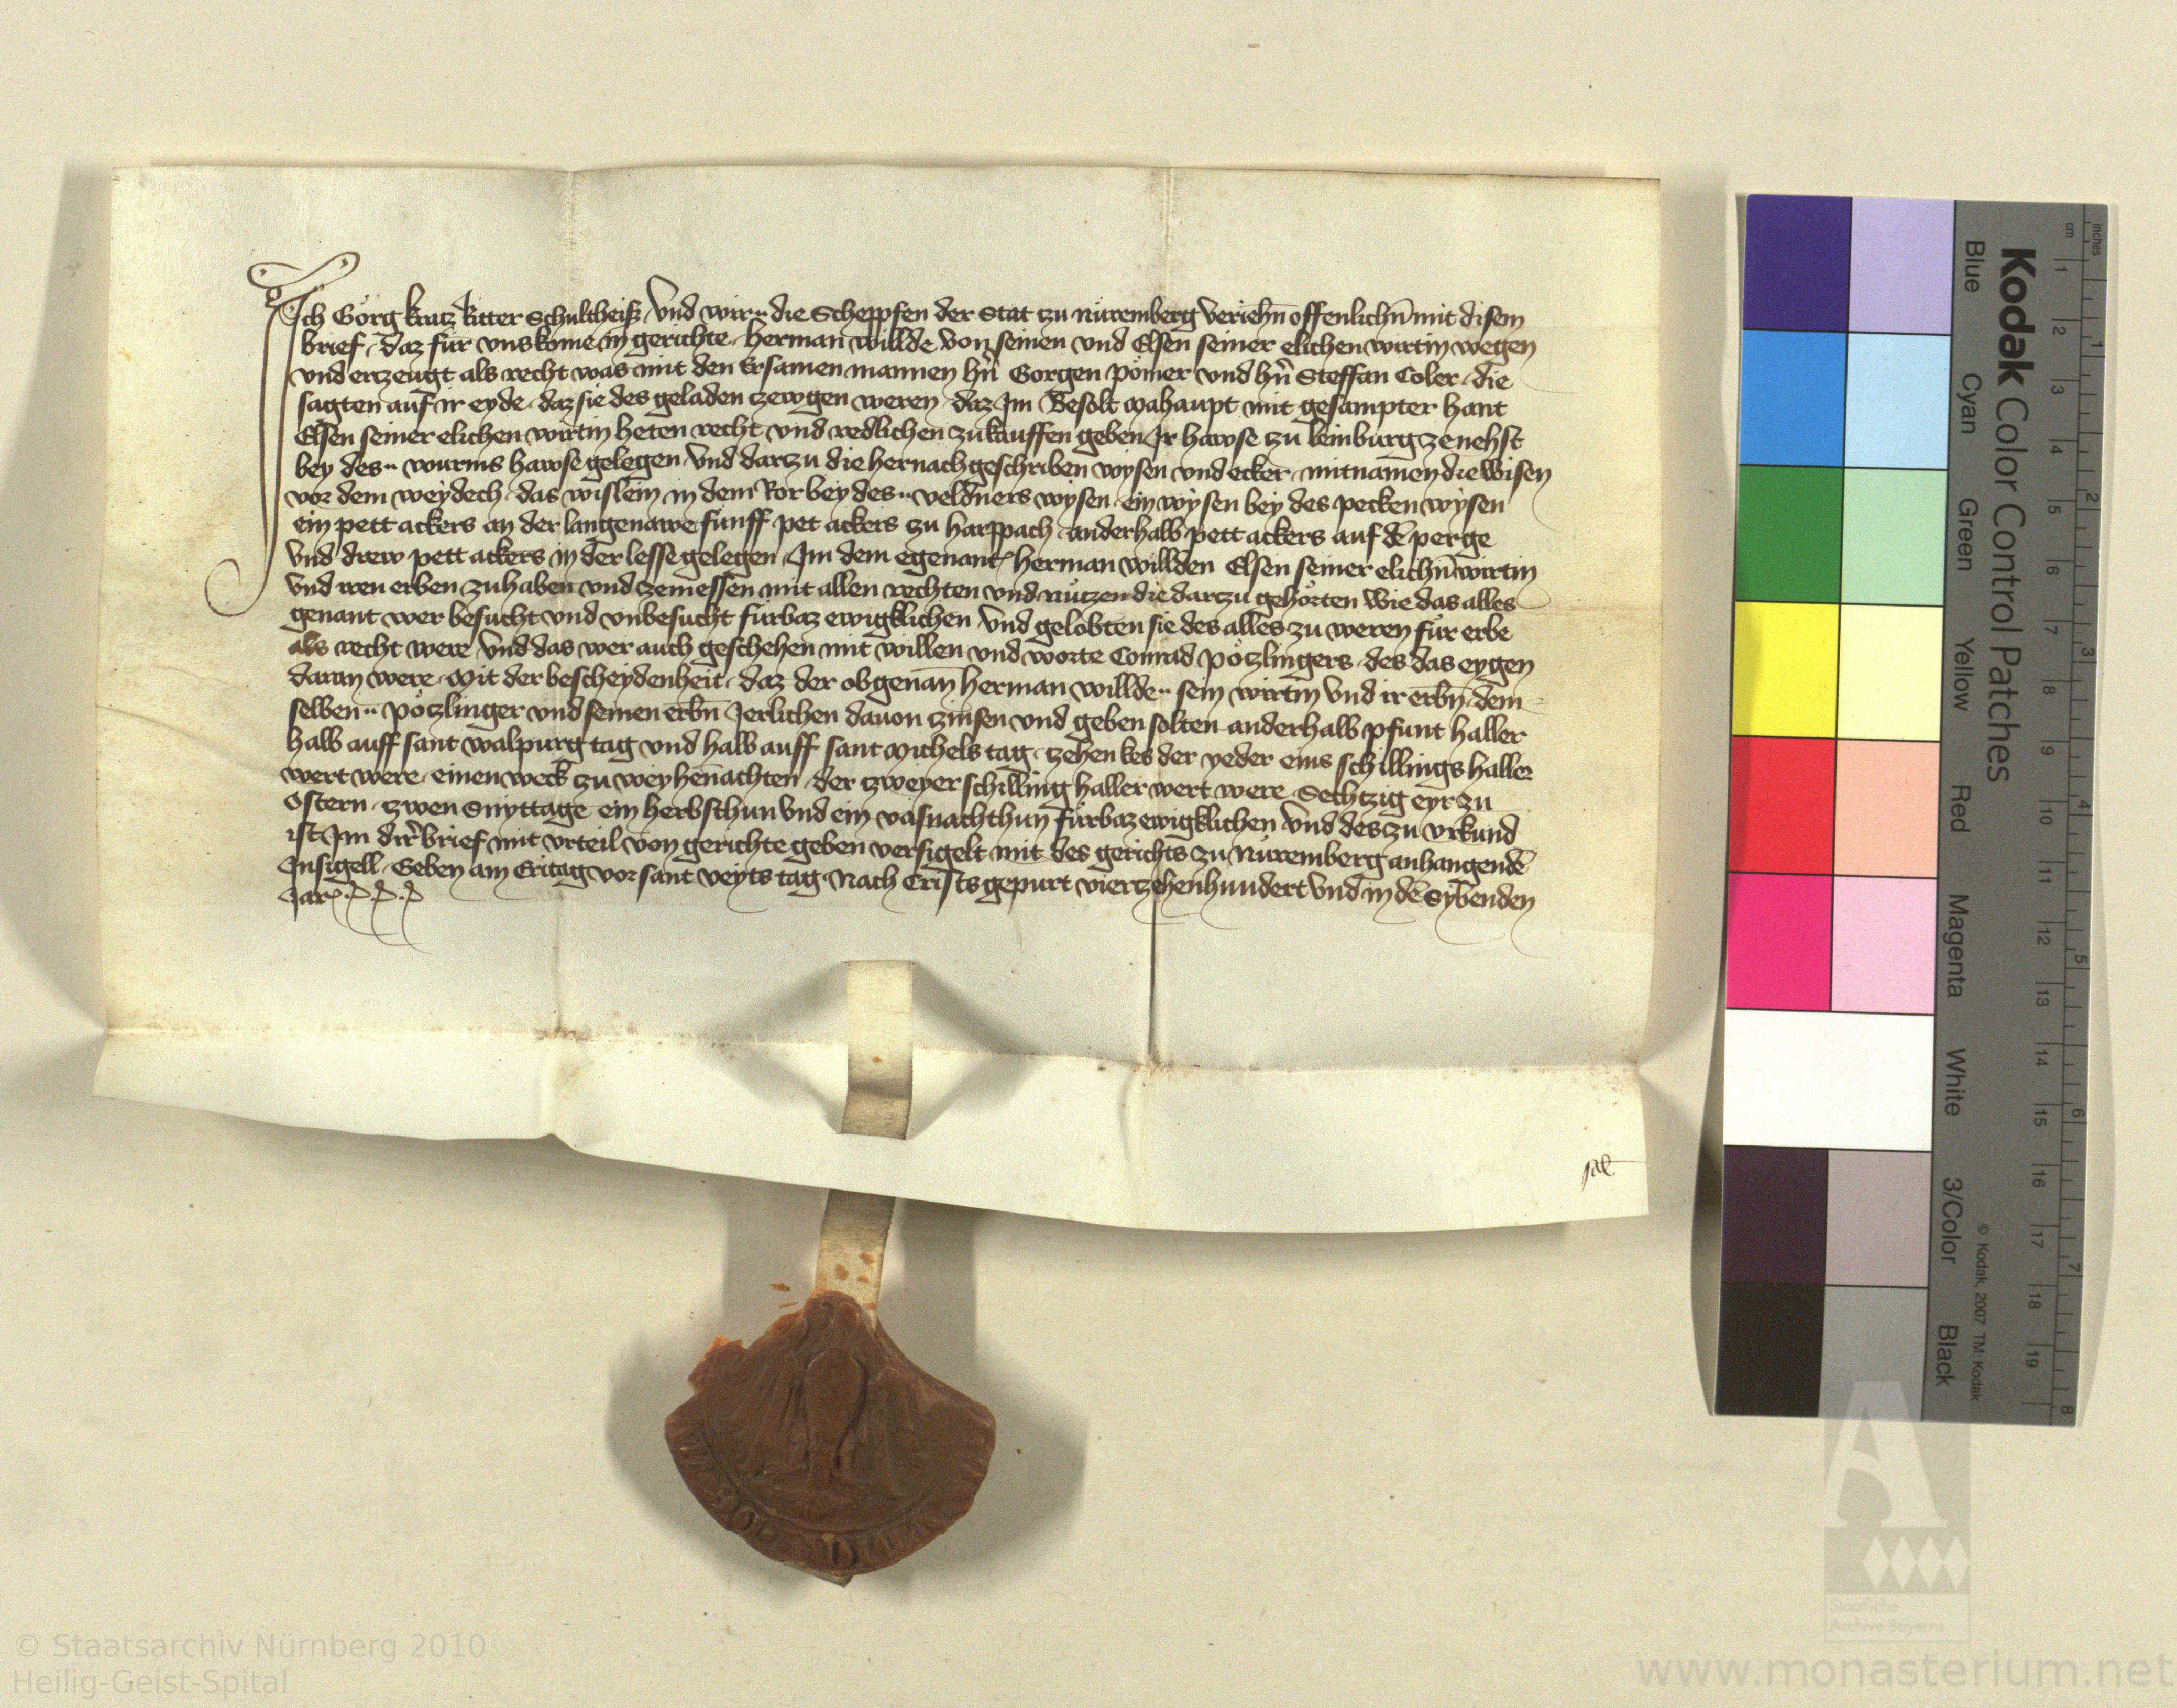 Ich Görg kratz Ritter Schultheiß Vnd wir·· die Scheppfen der Stat zu Nüremberg Veriehn̄ offenlichn̄ mit disem
brief · daz für vns kome in gerichte · herman willde von seinen vnd Elsen seiner elichen wirtin wegen
vnd erzeugt als recht was mit den Ersamen mannen hn̄ Gorgen pömer vnd hn̄ Steffan Coler · die
sagten auf ir eyde · daz sie des geladen zewgen weren · daz Im Besolt mahaupt mit gesampter hant
Elsen seiner elichen wirtin heten recht vnd redlichen zukauffen geben Ir hawse zu leinburg zenehst
bey des·· wurms hawse gelegen Vnd darzu die hernachgeschriben wysen vnd ecker · mitnamen die Wisen
vor dem weydech · das wislein in dem Ror bey des·· veldners wysen · ein wysen bey des pecken wysen
ein pett ackers an der langenawe fünff pet ackers zu harppach · anderhalb pett ackers auf dē perge
Vnd drew pett ackers in der lesse gelegen · Im dem egenant herman willden Elsen seiner elichn̄ wirtin
Vnd iren erben zuhaben vnd zeniessen mit allen rechten vnd nützen die darzu gehörten Wie das alles
genant wer besucht vnd vnbesucht fürbaz ewigklichen Vnd gelobten sie des alles zu weren für erbe
als recht were Vnd das wer auch geschehen mit willen vnd worte Conrad pötzlingers · des das eygen
daran were · Mit der bescheydenheit · daz der obgenan̄ herman willde·· sein wirtin Vnd ir erbn̄ · dem
selben·· pötzlinger vnd seinen erbn̄ Jerlichen dauon zinsen vnd geben solten anderhalb pfunt haller
halb auff sant walpurg tag vnd halb auff sant Michels tag · zehen kes der yeder eins schillings haller
wert were · einen weck zu weyhen̄achten · der zweyer schilling haller wert were · Sechtzig eyr zu
Ostern · zwen Snyttage ein herbsthun Vnd ein vasnachthun fürbaz ewigklichen Vnd des zu vrkund
ist Im dirr̄ brief mit vrteil von gerichte geben versigelt mit des gerichts zu Nüremberg anhangendē
Insigell · Geben am Eritag vor sant veyts tag · Nach Crists gepurt vierzehenhundert Vnd in dē Sybenden
Jar
Kodak Color Control Patches
Blue Cyan Green Yellow Red Magenta White 3/Color Black
© Kodak, 2007 TM: Kodak
inches 1 2 3 4 5 6 7 8
cm 1 2 3 4 5 6 7 8 9 10 11 12 13 14 15 16 17 18 19
Staatliche
Archive Bayerns
© Staatsarchiv Nürnberg 2010
Heilig-Geist-Spital
www.monasterium.net